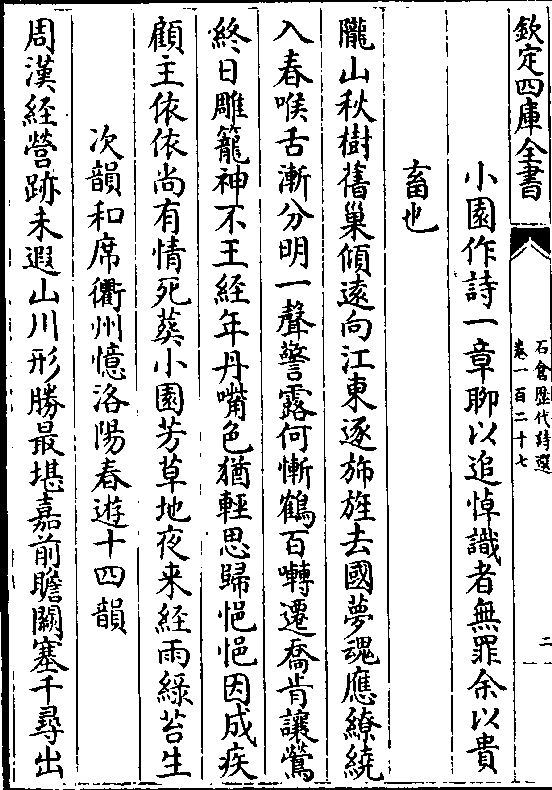 欽定四庫全書
石倉歷代詩選
卷一百二十七
二
小園作詩一章聊以追悼識者無罪余以貴
畜也
隴山秋樹舊巢傾遠向江東逐斾旌去國夢魂應繚繞
入春喉舌漸分明一聲警露何慚鶴百囀遷喬肯讓鶯
終日雕籠神不王經年丹嘴色猶輕思歸悒悒因成疾
顧主依依尚有情死葬小園芳草地夜来經雨綠苔生
次韻和席衢州憶洛陽春遊十四韻
周漢経營跡未遐山川形勝最堪嘉前瞻闕塞千尋出